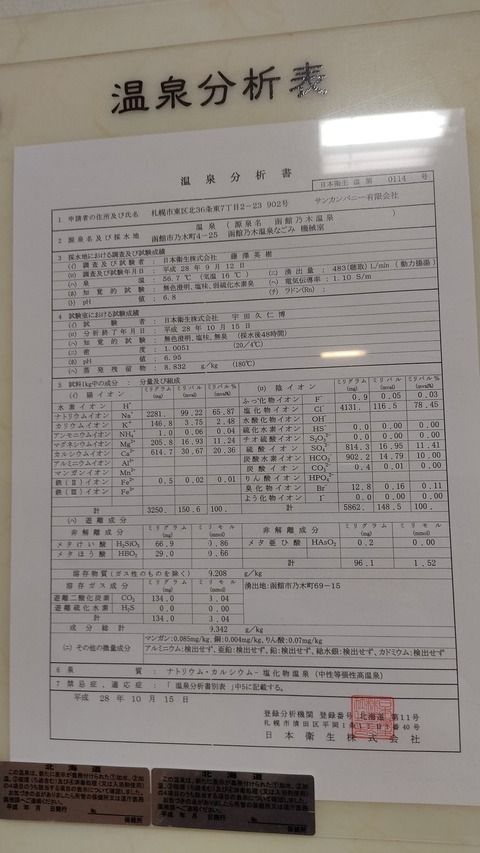 温泉分析表
温泉分析書
日本衛生 温 第 0114 号
1 申請者の住所及び氏名 札幌市東区北36条東7丁目2-23 902号 サンカンパニー有限会社
2 源泉名及び採水地 温泉 (源泉名 函館乃木温泉 )
函館市乃木町4-25 函館乃木温泉なごみ 機械室
3 採水地における調査及び試験成績
(イ) 調査及び試験者 : 日本衛生株式会社 藤澤英樹
(ロ) 調査及び試験年月日 : 平成 28 年 9 月 12 日
(ハ) 泉温 : 56.7 ℃ (気温 16 ℃) (ニ) 湧出量 : 483(聴取) L/min (動力揚湯)
(ホ) 知覚的試験 : 無色澄明、塩味、弱硫化水素臭 (ヘ) 電気伝導率 : 1.10 S/m
(ト) pH値 : 6.8 (チ) ラドン(Rn) :
4 試験室における試験成績
(イ) 試験者 : 日本衛生株式会社 宇田久仁博
(ロ) 分析終了年月日 : 平成 28 年 10 月 15 日
(ハ) 知覚的試験 : 無色澄明、塩味、無臭 (採水後48時間)
(ニ) 密度 : 1.0051 (20/4℃)
(ホ) pH値 : 6.95
(ヘ) 蒸発残留物 : 8.832 g/kg (180℃)
5 試料1kg中の成分 : 分量及び組成
(イ) 陽イオン ミリグラム(mg) ミリバル(mval) ミリバル%(mval%)
水素イオン H⁺
ナトリウムイオン Na⁺ 2281. 99.22 65.87
カリウムイオン K⁺ 146.8 3.75 2.48
アンモニウムイオン NH₄⁺ 1.0 0.06 0.04
マグネシウムイオン Mg²⁺ 205.8 16.93 11.24
カルシウムイオン Ca²⁺ 614.7 30.67 20.36
アルミニウムイオン Al³⁺
マンガンイオン Mn²⁺
鉄(Ⅱ)イオン Fe²⁺ 0.5 0.02 0.01
鉄(Ⅲ)イオン Fe³⁺
計 3250. 150.6 100.
(ロ) 陰イオン ミリグラム(mg) ミリバル(mval) ミリバル%(mval%)
ふっ化物イオン F⁻ 0.9 0.05 0.03
塩化物イオン Cl⁻ 4131. 116.5 78.45
水酸化物イオン OH⁻
硫化水素イオン HS⁻ 0.0 0.00 0.00
チオ硫酸イオン S₂O₃²⁻ 0.0 0.00 0.00
硫酸イオン SO₄²⁻ 814.3 16.95 11.41
炭酸水素イオン HCO₃⁻ 902.2 14.79 10.00
炭酸イオン CO₃²⁻ 0.4 0.01 0.00
りん酸イオン HPO₄²⁻
臭化物イオン Br⁻ 12.8 0.16 0.11
よう化物イオン I⁻ 0.0 0.00 0.00
計 5862. 148.5 100.
(ハ) 遊離成分
非解離成分 ミリグラム(mg) ミリモル(mmol) 非解離成分 ミリグラム(mg) ミリモル(mmol)
メタけい酸 H₂SiO₃ 66.9 0.86 メタ亜ひ酸 HAsO₂ 0.2 0.00
メタほう酸 HBO₂ 29.0 0.66
計 96.1 1.52
溶存物質(ガス性のものを除く) 9.208 g/kg
溶存ガス成分 ミリグラム(mg) ミリモル(mmol) 湧出地:函館市乃木町69-15
遊離二酸化炭素 CO₂ 134.0 3.04
遊離硫化水素 H₂S 0.0 0.00
計 134.0 3.04
成分総計 9.342 g/kg
(ニ) その他の微量成分 マンガン:0.085mg/kg, 銅:0.004mg/kg, りん酸:0.07mg/kg
アルミニウム:検出せず, 亜鉛:検出せず, 鉛:検出せず, 総水銀:検出せず, カドミウム:検出せず
6 泉質 : ナトリウム・カルシウム-塩化物温泉 (中性等張性高温泉)
7 禁忌症、適応症 : 「温泉分析書別表」中5に記載する。
平成 28 年 10 月 15 日
登録分析機関 登録番号 北海道 第11号
札幌市清田区平岡1条
日本衛生株式会社
北海道
北海道